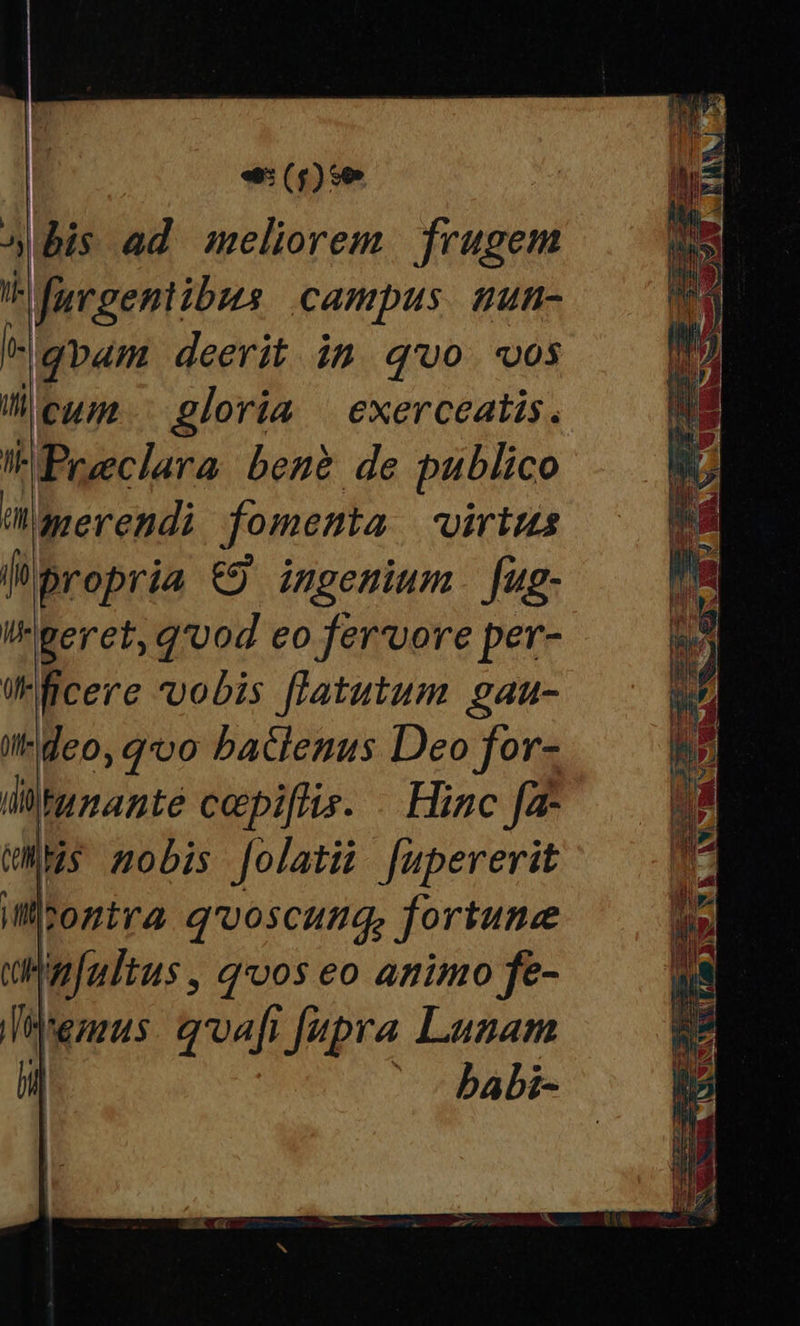 (5)
bis ad meliorem frugem
ſurgentibus campus nun-
qvam deerit in qvo vos
cum gloria exerceatis.
Præclara benè de publico
merendi fomenta virtus
propria & ingenium ſug-
geret, qvod eo fervore per-
ficere vobis ſtatutum gau-
deo, qvo hactenus Deo for-
tunante cœpiſtis. Hinc ſa-
tis nobis ſolatii ſupererit
contra qvoscunq; fortunæ
inſultus, qvos eo animo fe-
remus qvaſi ſupra Lunam
habi-